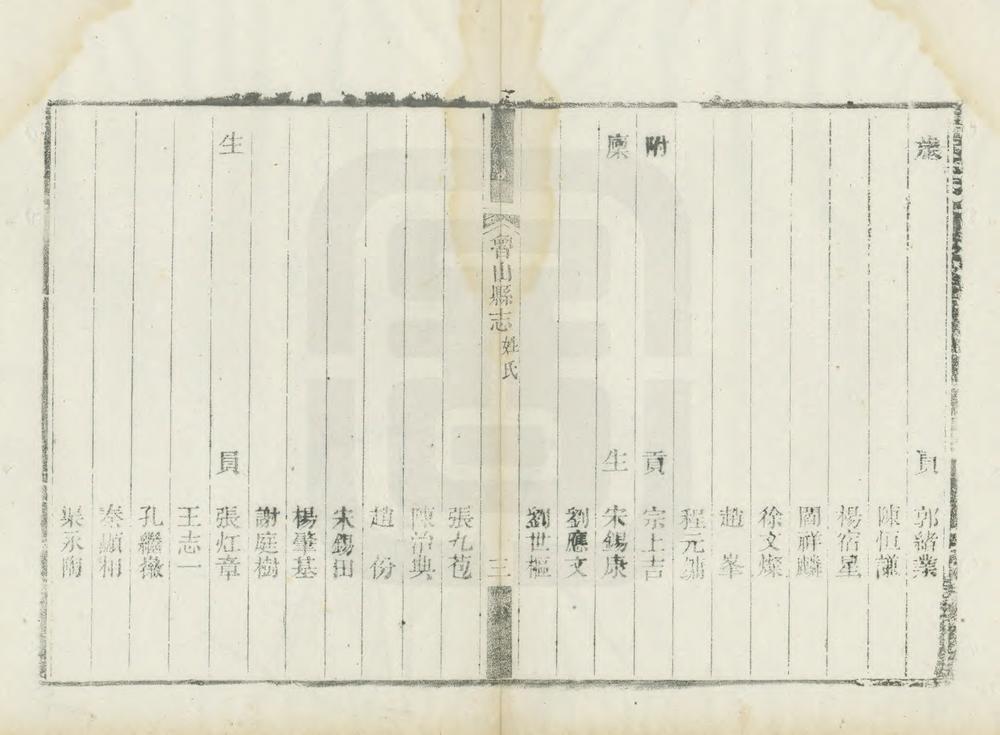 歲貢 郭緒業
陳恒謙
楊宿星
閻祥麟
徐文燦
趙峯
程元鏞
附貢 宗上吉
廩生 宋錫康
劉應文
劉世樞
魯山縣志 姓氏 三
張九苞
陳冶典
趙份
朱錫田
楊肇基
謝庭樹
生員 張灴章
王志一
孔繼薇
秦顯相
渠永陶